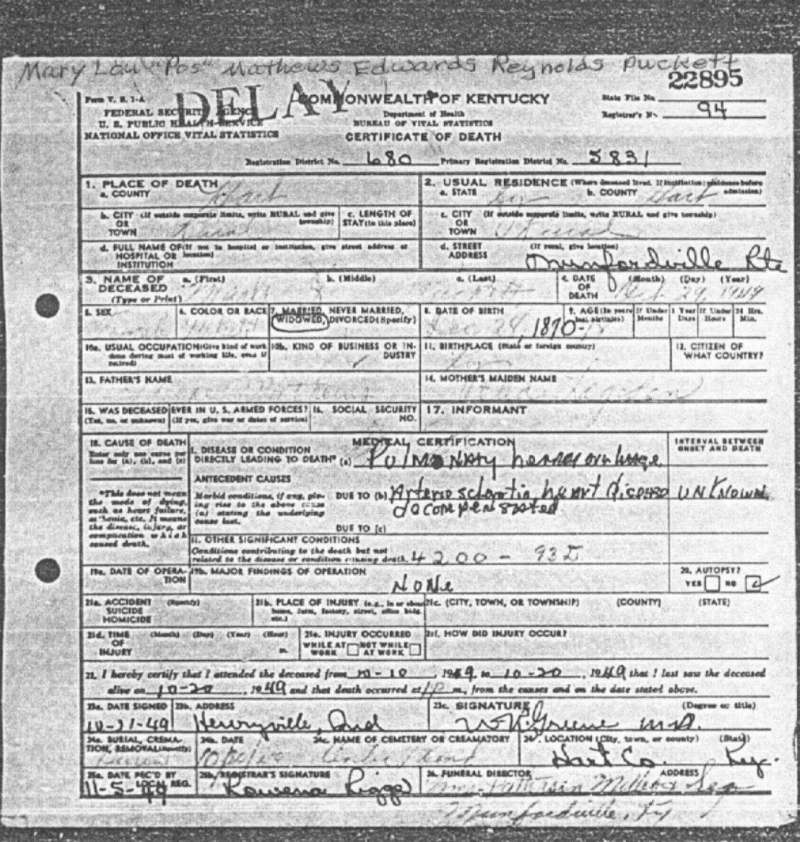 Mary Lou "Pos" Mathews Edwards Reynolds Puckett
22895
DELAY
Form V. S. 1-A COMMONWEALTH OF KENTUCKY State File No.
FEDERAL SECURITY AGENCY Department of Health Registrar's No. 94
U. S. PUBLIC HEALTH SERVICE BUREAU OF VITAL STATISTICS
NATIONAL OFFICE VITAL STATISTICS CERTIFICATE OF DEATH
Registration District No. 680 Primary Registration District No. 5831
1. PLACE OF DEATH
a. COUNTY Hart
2. USUAL RESIDENCE (Where deceased lived. If institution: residence before admission)
a. STATE Ky b. COUNTY Hart
b. CITY (If outside corporate limits, write RURAL and give township) OR TOWN Rural
c. LENGTH OF STAY (in this place)
c. CITY (If outside corporate limits, write RURAL and give township) OR TOWN Rural
d. FULL NAME OF (If not in hospital or institution, give street address or location) HOSPITAL OR INSTITUTION
d. STREET ADDRESS (If rural, give location) Munfordville Rte
3. NAME OF DECEASED (Type or Print) a. (First) b. (Middle) c. (Last)
4. DATE OF DEATH (Month) (Day) (Year)
5. SEX
6. COLOR OR RACE
7. MARRIED, NEVER MARRIED, WIDOWED, DIVORCED (Specify)
8. DATE OF BIRTH Dec 24 1870
9. AGE (In years last birthday) If Under 1 Year Months Days If Under 24 Hrs. Hours Min.
10a. USUAL OCCUPATION (Give kind of work done during most of working life, even if retired)
10b. KIND OF BUSINESS OR INDUSTRY
11. BIRTHPLACE (State or foreign country) Ky
12. CITIZEN OF WHAT COUNTRY?
13. FATHER'S NAME
14. MOTHER'S MAIDEN NAME
15. WAS DECEASED EVER IN U. S. ARMED FORCES? (Yes, no, or unknown) (If yes, give war or dates of service)
16. SOCIAL SECURITY NO.
17. INFORMANT
18. CAUSE OF DEATH
Enter only one cause per line for (a), (b), and (c)
MEDICAL CERTIFICATION
INTERVAL BETWEEN ONSET AND DEATH
I. DISEASE OR CONDITION DIRECTLY LEADING TO DEATH* (a) Pulmonary hemorrhage
*This does not mean the mode of dying, such as heart failure, asthenia, etc. It means the disease, injury, or complication which caused death.
ANTECEDENT CAUSES
Morbid conditions, if any, giving rise to the above cause (a) stating the underlying cause last.
DUE TO (b) Arteriosclerotic heart disease UNKNOWN
decompensated
DUE TO (c)
II. OTHER SIGNIFICANT CONDITIONS
Conditions contributing to the death but not related to the disease or condition causing death. 4200 - 93D
19a. DATE OF OPERATION
19b. MAJOR FINDINGS OF OPERATION
NONE
20. AUTOPSY?
YES NO
21a. ACCIDENT SUICIDE HOMICIDE (Specify)
21b. PLACE OF INJURY (e.g., in or about home, farm, factory, street, office bldg. etc.)
21c. (CITY, TOWN, OR TOWNSHIP) (COUNTY) (STATE)
21d. TIME OF INJURY (Month) (Day) (Year) (Hour) m.
21e. INJURY OCCURRED WHILE AT WORK NOT WHILE AT WORK
21f. HOW DID INJURY OCCUR?
22. I hereby certify that I attended the deceased from 10-10, 1949 to 10-20, 1949 that I last saw the deceased
alive on 10-20, 1949 and that death occurred at m., from the causes and on the date stated above.
23a. DATE SIGNED 23b. ADDRESS 23c. SIGNATURE (Degree or title)
10-21-49 Henryville, Ind MD.
24a. BURIAL, CREMATION, REMOVAL (Specify) 24b. DATE 24c. NAME OF CEMETERY OR CREMATORY 24d. LOCATION (City, town, or county) (State)
Hart Co. Ky.
25a. DATE REC'D BY LOCAL REG. 25b. REGISTRAR'S SIGNATURE 26. FUNERAL DIRECTOR ADDRESS
11-5-49 Rowena Riggs
Munfordville, Ky